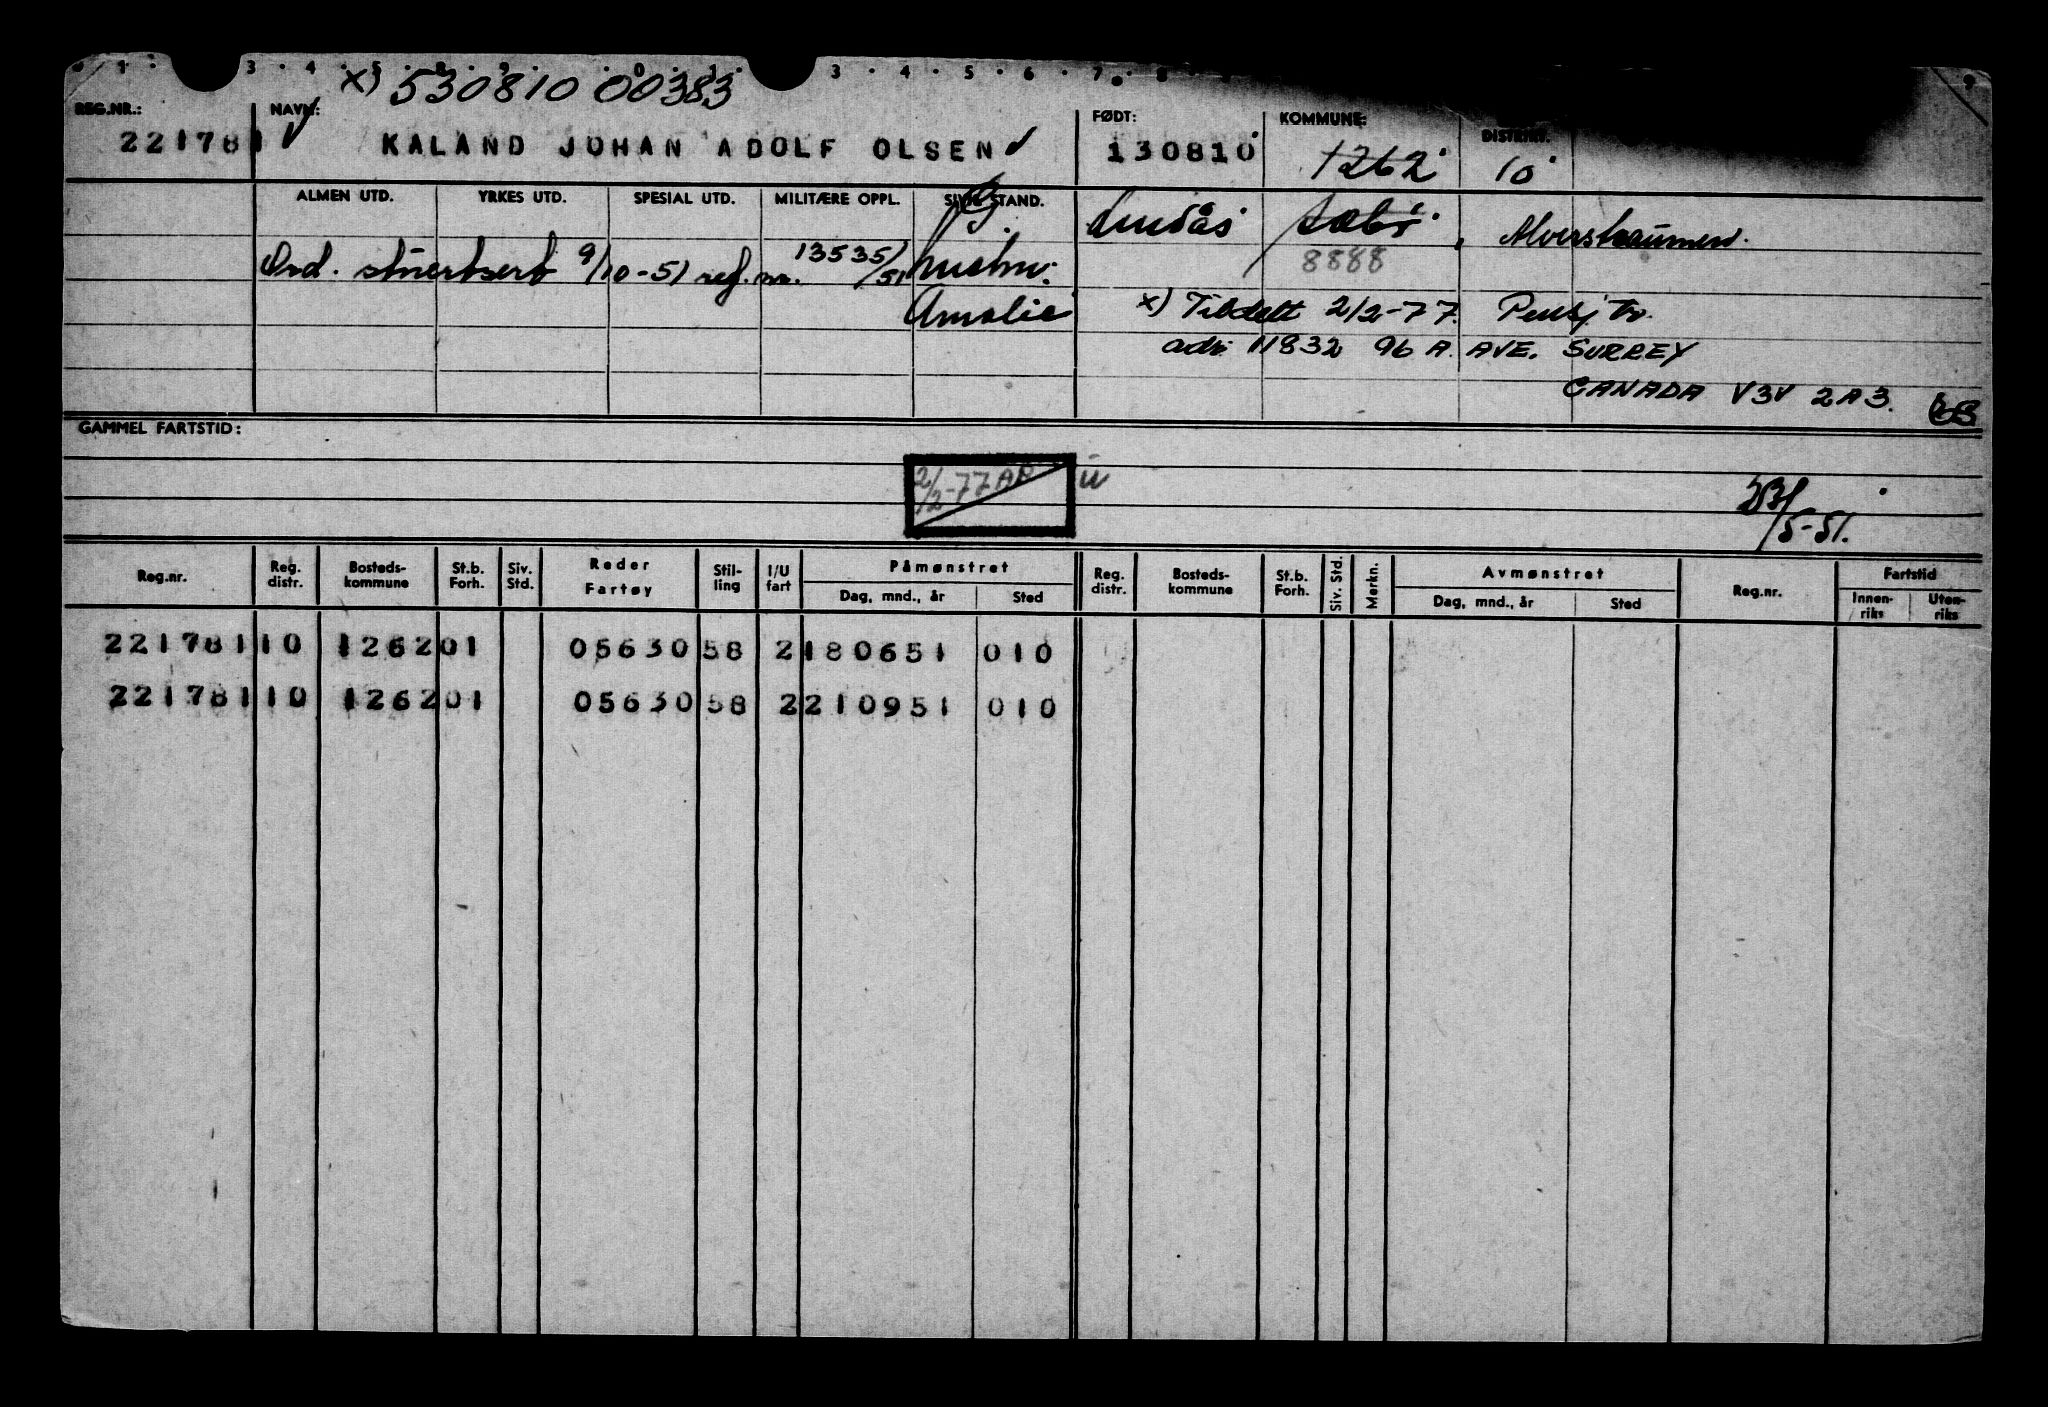 x) 530810 00383
REG.NR.: NAVN: FØDT: KOMMUNE: DISTRIKT.
221781 KALAND JOHAN ADOLF OLSEN 130810 1262 10
ALMEN UTD. YRKES UTD. SPESIAL UTD. MILITÆRE OPPL. SIVIL STAND.
g. Lindås Sæbø, Alverstraumen.
Ord. stuertsert 9/10-51 ref. nr. 13535/51 8888
Amalie x) Tildelt 2/2-77. Pensj tr.
adr. 11832 96 A. AVE. SURREY
CANADA V3V 2A3.
GAMMEL FARTSTID:
2/2-77 AP
/5-51.
Reg.nr. Reg. distr. Bosteds-kommune St.b. Forh. Siv. Std. Reder Fartøy Stil-ling I/U fart Påmønstret Dag, mnd., år Sted Reg. distr. Bosteds-kommune St.b. Forh. Siv. Std. Merkn. Avmønstret Dag, mnd., år Sted Reg.nr. Fartstid Innen-riks Uten-riks
221781 10 1262 01 05630 58 2 180651 010
221781 10 1262 01 05630 58 2 210951 010